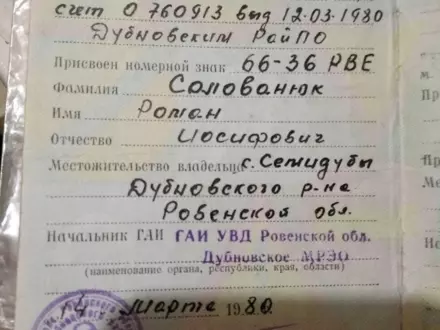 счет О 760913 выд 12.03.1980
Дубновским РайПО
Присвоен номерной знак 66-36 РВЕ
Фамилия Солованюк
Имя Роман
Отчество Иосифович
Местожительство владельца с. Семидубы
Дубновского р-на
Ровенской обл.
Начальник ГАИ ГАИ УВД Ровенской обл.
Дубновское МРЭО
(наименование органа, республики, края, области)
Марта 1980.